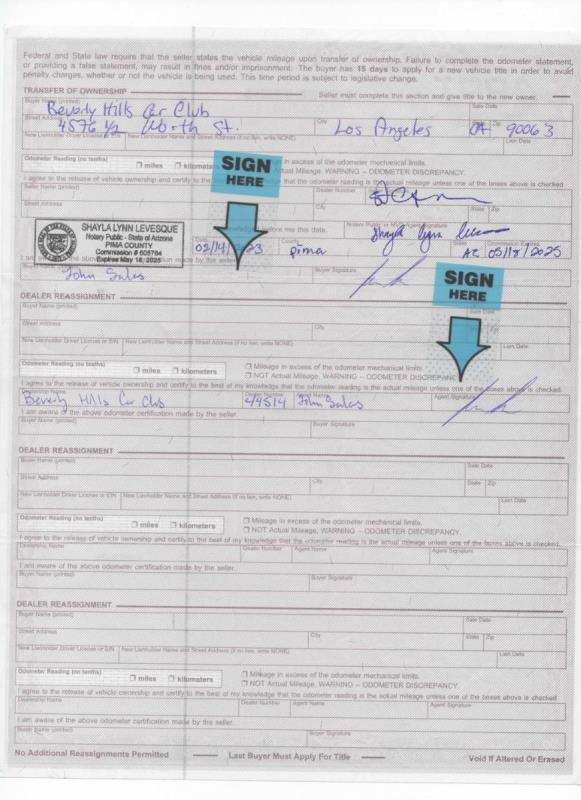 Federal and State law require that the seller states the vehicle mileage upon transfer of ownership. Failure to complete the odometer statement,
or providing a false statement, may result in fines and/or imprisonment. The buyer has 15 days to apply for a new vehicle title in order to avoid
penalty charges, whether or not the vehicle is being used. This time period is subject to legislative change.
TRANSFER OF OWNERSHIP Seller must complete this section and give title to the new owner.
Buyer Name (printed) Sale Date
Beverly Hills Car Club
Street Address City State Zip
4576 1/2 Worth St. Los Angeles CA 90063
New Lienholder Driver License or EIN New Lienholder Name and Street Address (if no lien, write NONE) Lien Date
Odometer Reading (no tenths) miles kilometers in excess of the odometer mechanical limits.
Mileage, WARNING – ODOMETER DISCREPANCY.
SIGN
HERE
I agree to the release of vehicle ownership and certify to the that the odometer reading is the actual mileage unless one of the boxes above is checked
Seller Name (printed) Dealer Number
Street Address City State Zip
SHAYLA LYNN LEVESQUE
Notary Public - State of Arizona
PIMA COUNTY
Commission # 605764
Expires May 18, 2025
before me this date.
County State Commission Expires
Pima Shayla Lynn AZ 05/18/2025
made by the seller.
Buyer Name (printed) Buyer Signature
John Sales
SIGN
HERE
DEALER REASSIGNMENT
Buyer Name (printed) Sale Date
Street Address City State Zip
New Lienholder Driver License or EIN New Lienholder Name and Street Address (if no lien, write NONE) Lien Date
Odometer Reading (no tenths) miles kilometers Mileage in excess of the odometer mechanical limits.
NOT Actual Mileage, WARNING – ODOMETER DISCREPANCY
I agree to the release of vehicle ownership and certify to the best of my knowledge that the odometer reading is the actual mileage unless one of the boxes above is checked.
Dealership Name Dealer Number Agent Name Agent Signature
Beverly Hills Car Club 44514 John Sales
I am aware of the above odometer certification made by the seller.
Buyer Name (printed) Buyer Signature
DEALER REASSIGNMENT
Buyer Name (printed) Sale Date
Street Address City State Zip
New Lienholder Driver License or EIN New Lienholder Name and Street Address (if no lien, write NONE) Lien Date
Odometer Reading (no tenths) miles kilometers Mileage in excess of the odometer mechanical limits.
NOT Actual Mileage, WARNING – ODOMETER DISCREPANCY.
I agree to the release of vehicle ownership and certify to the best of my knowledge that the odometer reading is the actual mileage unless one of the boxes above is checked.
Dealership Name Dealer Number Agent Name Agent Signature
I am aware of the above odometer certification made by the seller.
Buyer Name (printed) Buyer Signature
DEALER REASSIGNMENT
Buyer Name (printed) Sale Date
Street Address City State Zip
New Lienholder Driver License or EIN New Lienholder Name and Street Address (if no lien, write NONE) Lien Date
Odometer Reading (no tenths) miles kilometers Mileage in excess of the odometer mechanical limits.
NOT Actual Mileage, WARNING – ODOMETER DISCREPANCY.
I agree to the release of vehicle ownership and certify to the best of my knowledge that the odometer reading is the actual mileage unless one of the boxes above is checked
Dealership Name Dealer Number Agent Name Agent Signature
I am aware of the above odometer certification made by the seller.
Buyer Name (printed) Buyer Signature
No Additional Reassignments Permitted Last Buyer Must Apply For Title Void If Altered Or Erased